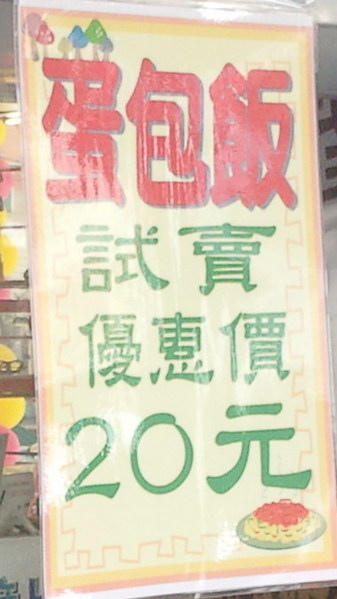 蛋包飯
試賣
優惠價
20元